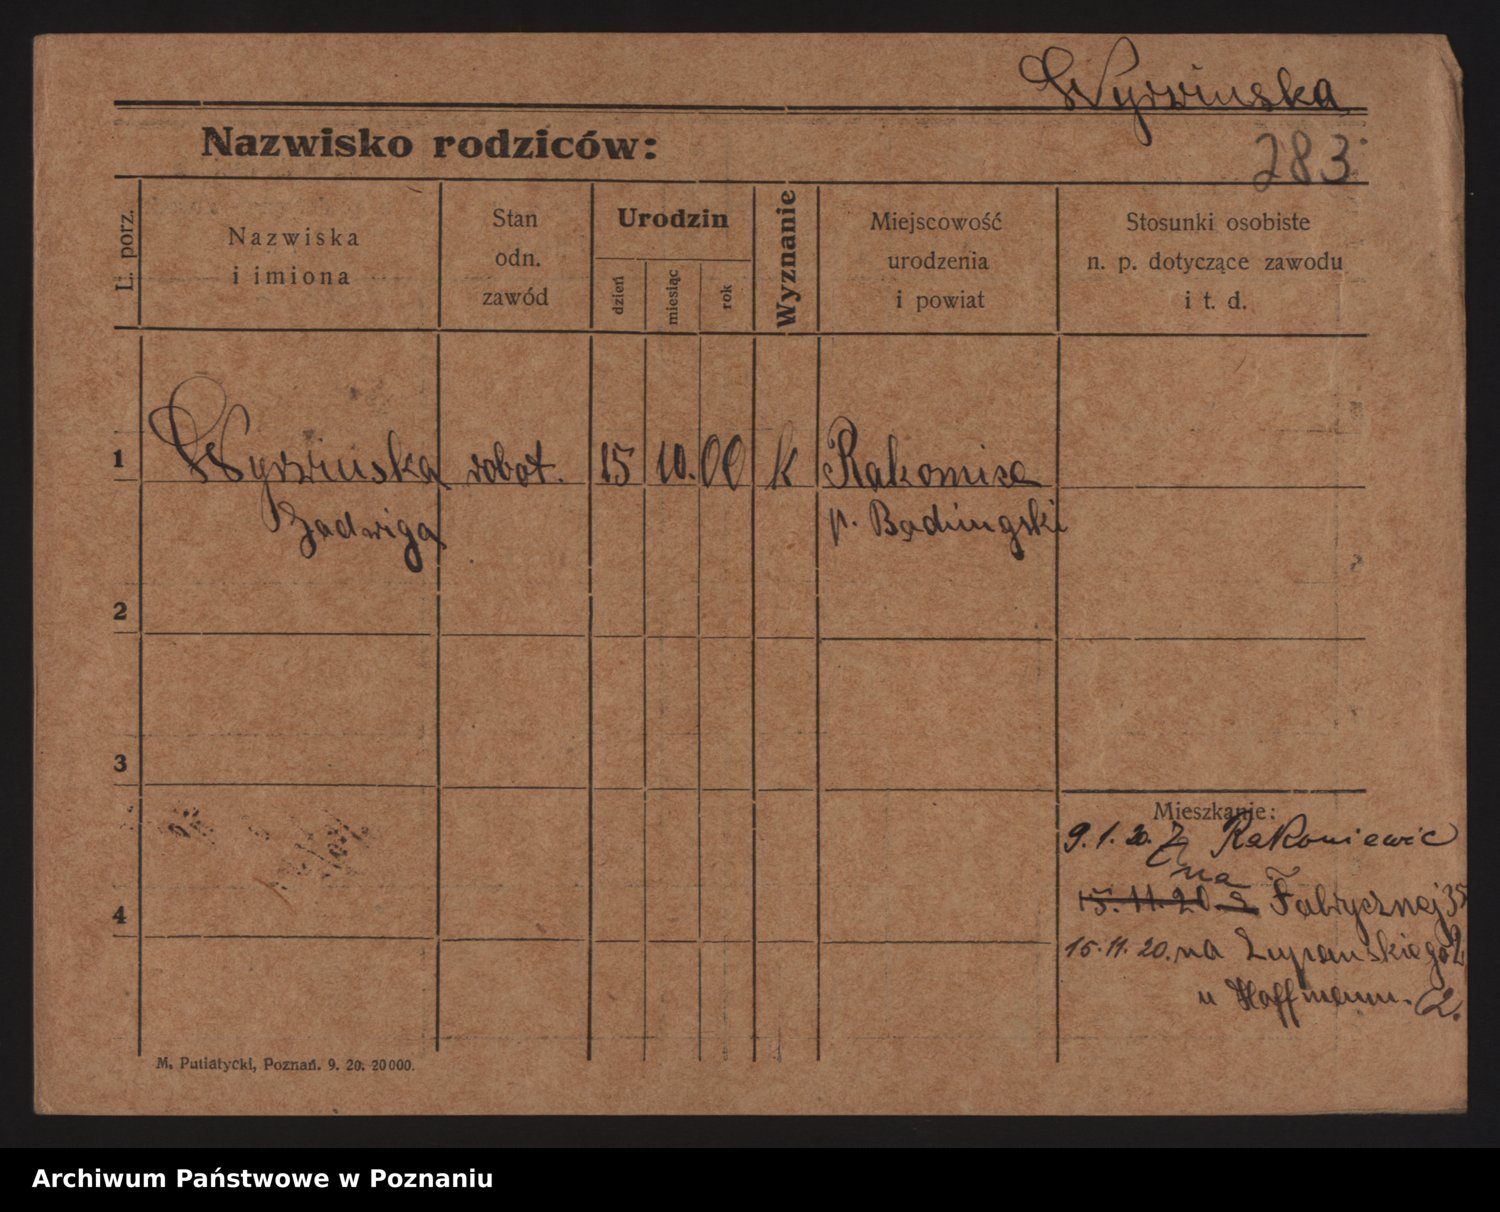 Wyrwinska
Nazwisko rodziców:
283
L. porz.
Nazwiska
i imiona
Stan
odn.
zawód
Urodzin
dzień
miesiąc
rok
Wyznanie
Miejscowość
urodzenia
i powiat
Stosunki osobiste
n. p. dotyczące zawodu
i t. d.
1 Wyrwinska robot. 15 10. 00 k
Jadwiga
2
3
4
Mieszkanie:
9. 1. 20. Z Rakoniewic
na
15. 11. 20 Fabrycznej 35
15. 11. 20. na Zupanskiego 2
u Hoffmann. (2.
M. Putiatycki, Poznań. 9. 20. 20000.
Archiwum Państwowe w Poznaniu